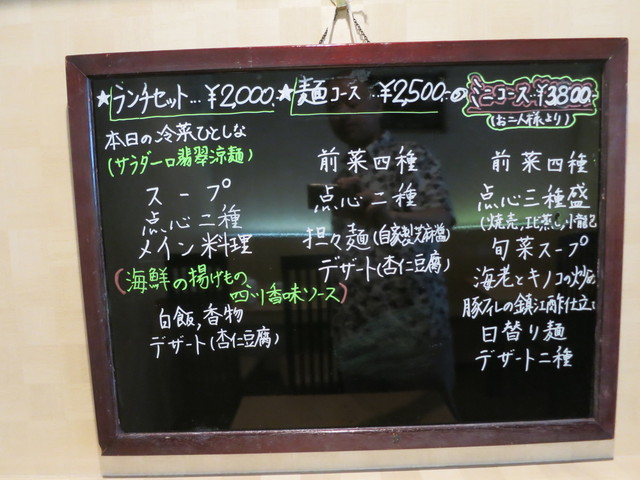 ★ランチセット…¥2,000.
本日の冷菜ひとしな
(サラダ一口翡翠涼麺)
スープ
点心二種
メイン料理
(海鮮の揚げもの、
四川香味ソース)
白飯,香物
デザート(杏仁豆腐)
★麺コース…¥2,500.-
前菜四種
点心二種
担々麺(自家製芝麻醤)
デザート(杏仁豆腐)
ミニコース…¥3,800.-
(お二人様より)
前菜四種
点心三種盛
(焼売,
旬菜スープ
海老とキノコの炒
豚ヒレの鎮江酢仕立て
日替り麺
デザート二種